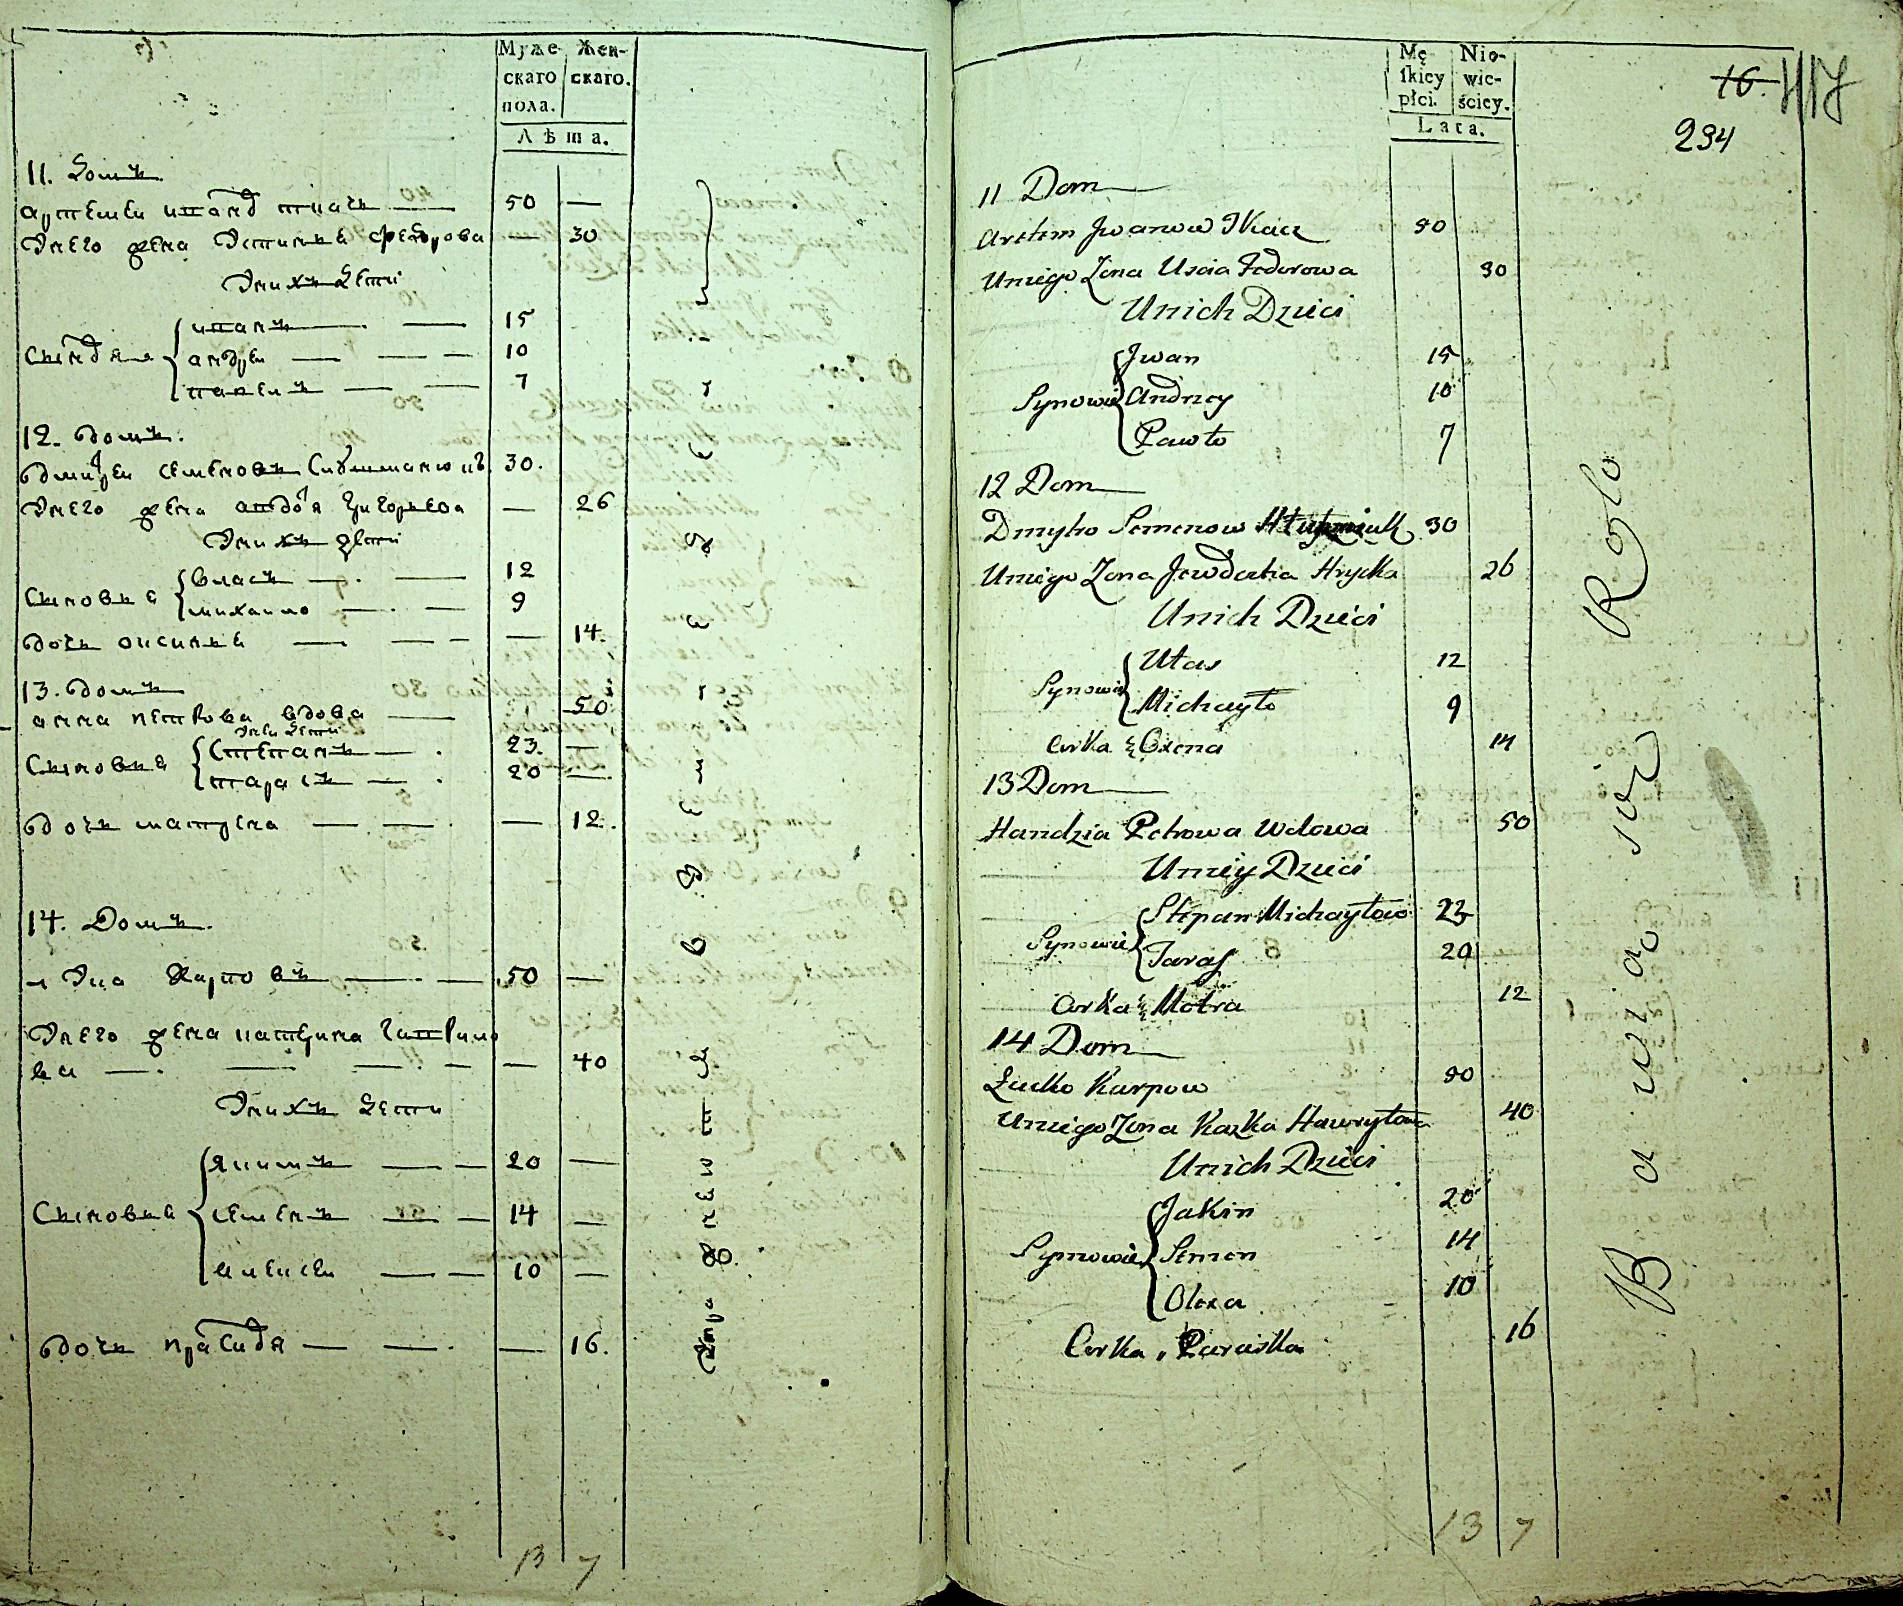 Муже-
скаго
пола.
Жен-
скаго.
Лѣта.
11. Домъ
артемеи иванов ткачъ 50 —
Унего жена Устинья федорова — 30
Унихъ дети
Сыновья
иванъ 15
андреи 10
павелъ 7
12. домъ.
дмитреи семеновъ 30.
Унего жена авдотя григорьева — 26
Унихъ дети
Сыновья
власъ 12
михаило 9
дочь оксинья — 14.
13. домъ
анна петрова вдова 50
Унеи дети
Сыновья
Степанъ 23. —
тарасъ 20 —
дочь матрена — 12.
14. Домъ.
Карповъ 50 —
Унего жена катерина гаврило
ва — 40
Унихъ дети
Сыновья
якимъ 20 —
семенъ 14 —
алексеи 10 —
дочь прасидя — 16.
13 7
Mę-
skiey
płci.
Nie-
wie-
ściey.
Lata.
16.
417
294
11 Dom
Artem Jwanow Tkacz 50
Uniego Zona Uscia Fedorowa 30
Unich Dzieci
Synowie
Jwan 15
Andrzey 10
Pawło 7
12 Dom
Dmytro Semenow 30
Uniego Zona Jewdocha Hrycka 26
Unich Dzieci
Synowie
Ułas 12
Michayło 9
Corka Oxena 14
13 Dom
Handzia Petrowa Wdowa 50
Uniey Dzieci
Synowie
Stepan Michayłow 23
Taras 20
Corka Motra 12
14 Dom
Karpow 50
Uniego Zona Kaśka Hawryłowa 40
Unich Dzieci
Synowie
Jakim 20
Semen 14
Olexa 10
Corka Paraska 16
Bawią się Rolo
13 7